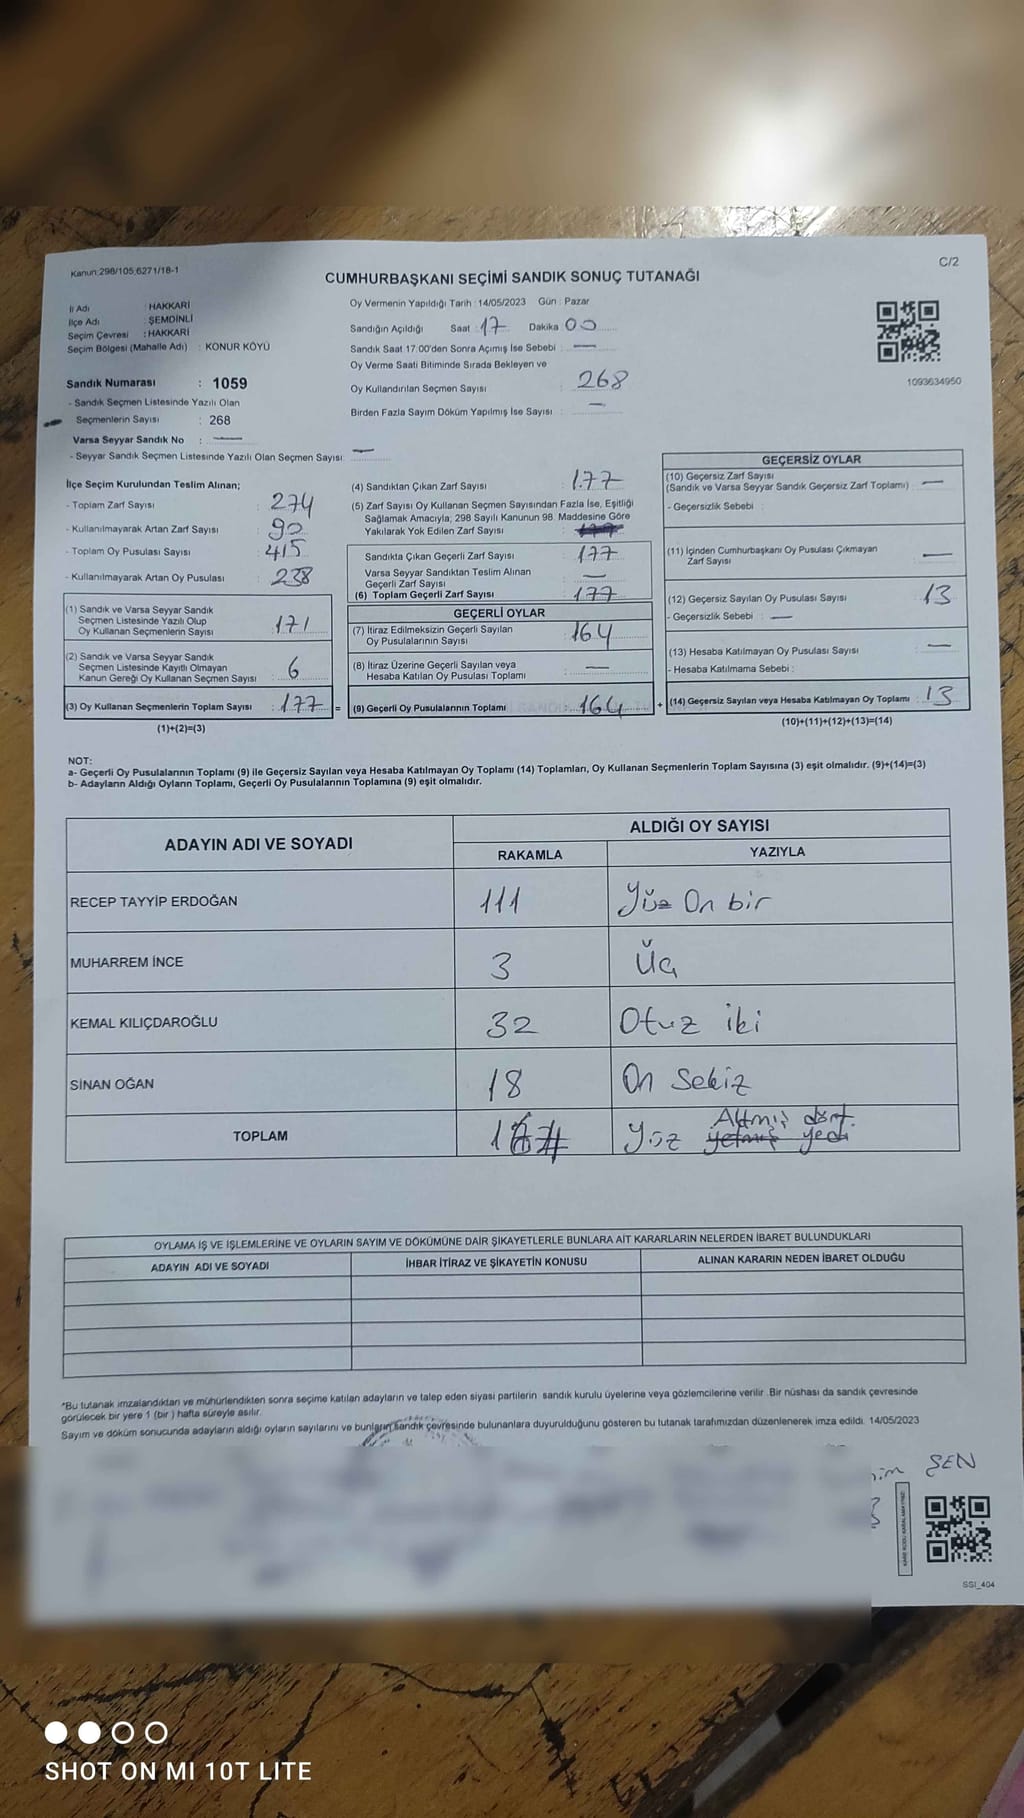 Kanun:298/105,6271/18-1
C/2
CUMHURBAŞKANI SEÇİMİ SANDIK SONUÇ TUTANAĞI
İl Adı : HAKKARİ
İlçe Adı : ŞEMDİNLİ
Seçim Çevresi : HAKKARİ
Seçim Bölgesi (Mahalle Adı) : KONUR KÖYÜ
Sandık Numarası : 1059
- Sandık Seçmen Listesinde Yazılı Olan
Seçmenlerin Sayısı : 268
Varsa Seyyar Sandık No : —
- Seyyar Sandık Seçmen Listesinde Yazılı Olan Seçmen Sayısı: —
Oy Vermenin Yapıldığı Tarih : 14/05/2023 Gün : Pazar
Sandığın Açıldığı Saat : 17 Dakika 00
Sandık Saat 17:00'den Sonra Açımış İse Sebebi : —
Oy Verme Saati Bitiminde Sırada Bekleyen ve
Oy Kullandırılan Seçmen Sayısı : 268
Birden Fazla Sayım Döküm Yapılmış İse Sayısı : —
1093634950
İlçe Seçim Kurulundan Teslim Alınan;
- Toplam Zarf Sayısı : 274
- Kullanılmayarak Artan Zarf Sayısı : 90
- Toplam Oy Pusulası Sayısı : 415
- Kullanılmayarak Artan Oy Pusulası : 238
(1) Sandık ve Varsa Seyyar Sandık
Seçmen Listesinde Yazılı Olup
Oy Kullanan Seçmenlerin Sayısı : 171
(2) Sandık ve Varsa Seyyar Sandık
Seçmen Listesinde Kayıtlı Olmayan
Kanun Gereği Oy Kullanan Seçmen Sayısı : 6
(3) Oy Kullanan Seçmenlerin Toplam Sayısı : 177 =
(1)+(2)=(3)
(4) Sandıktan Çıkan Zarf Sayısı : 177
(5) Zarf Sayısı Oy Kullanan Seçmen Sayısından Fazla İse, Eşitliği
Sağlamak Amacıyla; 298 Sayılı Kanunun 98. Maddesine Göre
Yakılarak Yok Edilen Zarf Sayısı :
Sandıkta Çıkan Geçerli Zarf Sayısı : 177
Varsa Seyyar Sandıktan Teslim Alınan
Geçerli Zarf Sayısı : —
(6) Toplam Geçerli Zarf Sayısı : 177
GEÇERLİ OYLAR
(7) İtiraz Edilmeksizin Geçerli Sayılan
Oy Pusulalarının Sayısı : 164
(8) İtiraz Üzerine Geçerli Sayılan veya
Hesaba Katılan Oy Pusulası Toplamı : —
(9) Geçerli Oy Pusulalarının Toplamı : 164 +
GEÇERSİZ OYLAR
(10) Geçersiz Zarf Sayısı
(Sandık ve Varsa Seyyar Sandık Geçersiz Zarf Toplamı) : —
- Geçersizlik Sebebi :
(11) İçinden Cumhurbaşkanı Oy Pusulası Çıkmayan
Zarf Sayısı : —
(12) Geçersiz Sayılan Oy Pusulası Sayısı : 13
- Geçersizlik Sebebi : —
(13) Hesaba Katılmayan Oy Pusulası Sayısı : —
- Hesaba Katılmama Sebebi :
(14) Geçersiz Sayılan veya Hesaba Katılmayan Oy Toplamı : 13
(10)+(11)+(12)+(13)=(14)
NOT:
a- Geçerli Oy Pusulalarının Toplamı (9) ile Geçersiz Sayılan veya Hesaba Katılmayan Oy Toplamı (14) Toplamları, Oy Kullanan Seçmenlerin Toplam Sayısına (3) eşit olmalıdır. (9)+(14)=(3)
b- Adayların Aldığı Oyların Toplamı, Geçerli Oy Pusulalarının Toplamına (9) eşit olmalıdır.
ADAYIN ADI VE SOYADI
ALDIĞI OY SAYISI
RAKAMLA YAZIYLA
RECEP TAYYİP ERDOĞAN 111 Yüz On bir
MUHARREM İNCE 3 Üç
KEMAL KILIÇDAROĞLU 32 Otuz iki
SİNAN OĞAN 18 On Sekiz
TOPLAM Yüz Altmış dört
yetmiş yedi
OYLAMA İŞ VE İŞLEMLERİNE VE OYLARIN SAYIM VE DÖKÜMÜNE DAİR ŞİKAYETLERLE BUNLARA AİT KARARLARIN NELERDEN İBARET BULUNDUKLARI
ADAYIN ADI VE SOYADI İHBAR İTİRAZ VE ŞİKAYETİN KONUSU ALINAN KARARIN NEDEN İBARET OLDUĞU
*Bu tutanak imzalandıktan ve mühürlendikten sonra seçime katılan adayların ve talep eden siyasi partilerin sandık kurulu üyelerine veya gözlemcilerine verilir. Bir nüshası da sandık çevresinde
görülecek bir yere 1 (bir ) hafta süreyle asılır.
Sayım ve döküm sonucunda adayların aldığı oyların sayılarını ve bunların sandık çevresinde bulunanlara duyurulduğunu gösteren bu tutanak tarafımızdan düzenlenerek imza edildi. 14/05/2023
ŞEN
SSI_404
SHOT ON MI 10T LITE